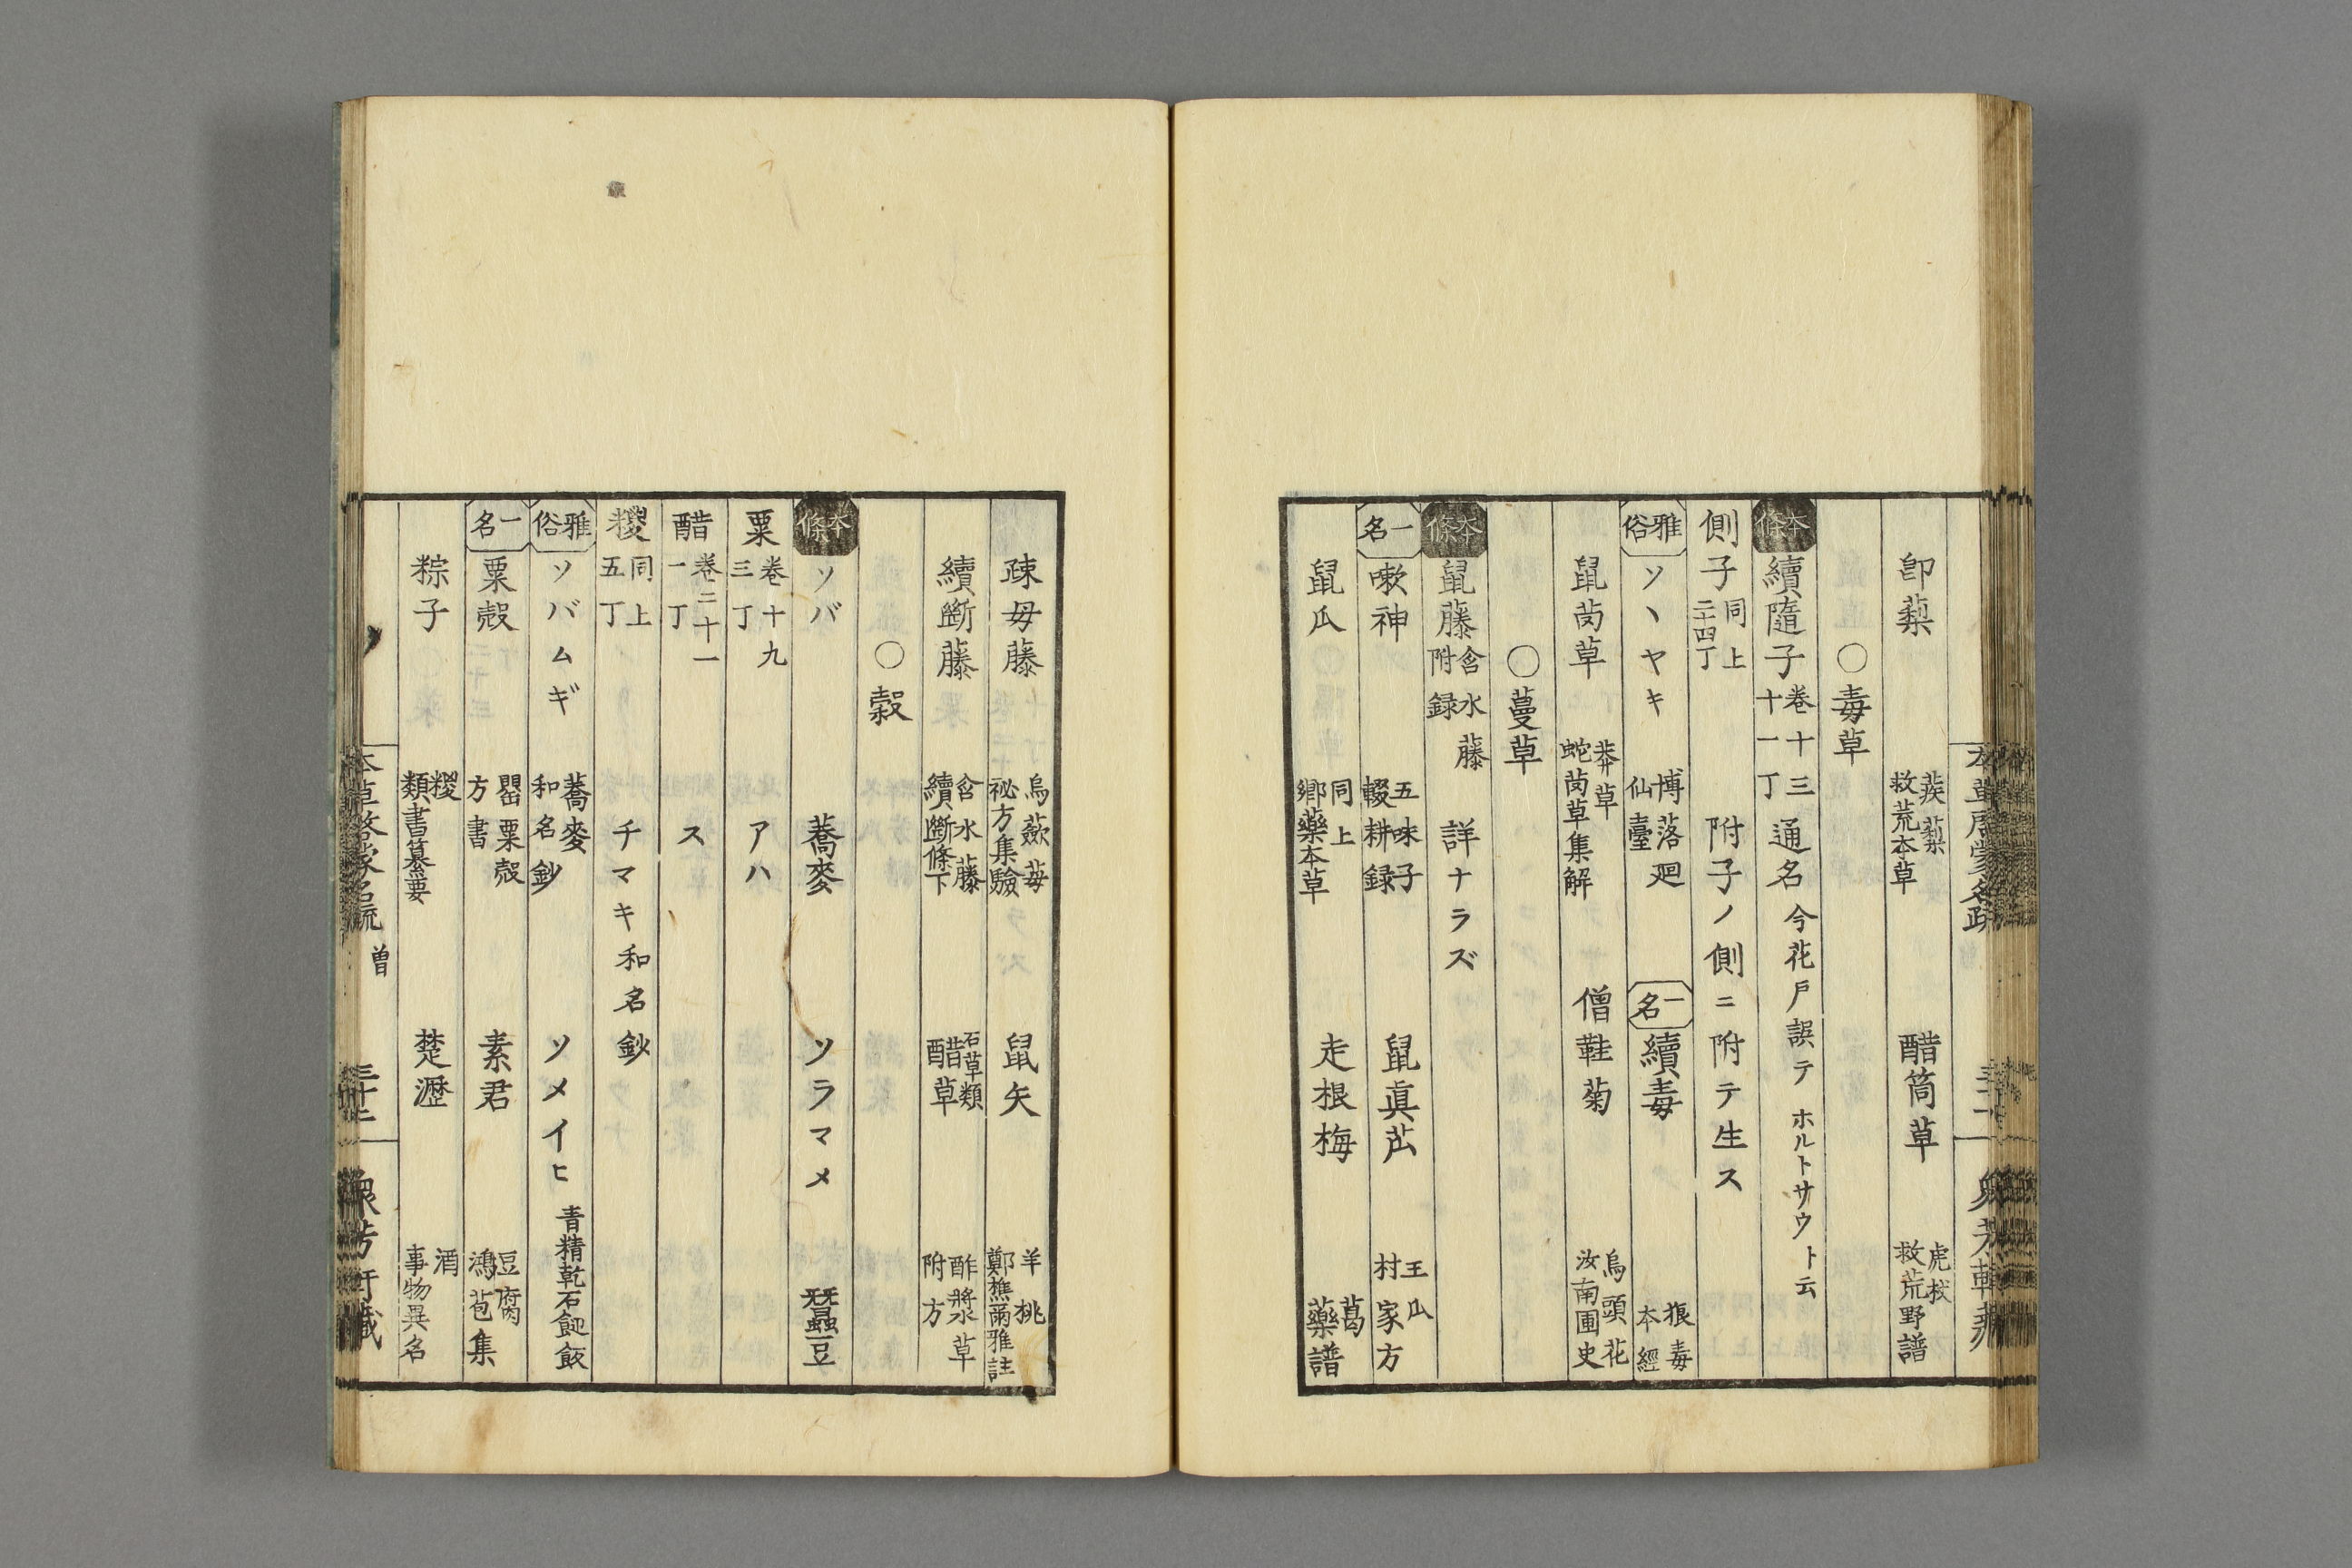 卽蔾 蒺蔾 救荒本草 醋筒草 虎杖 救荒野譜
〇毒草
本條 續隨子 卷十三 十一丁 通名 今花戸誤テ ホルトサウト云
側子 同上 二十四丁 附子ノ側ニ附テ生ス
雅俗 ソヽヤキ 博落廻 仙臺 一名 續毒 狼毒 本經
鼠莽草 莽草 蛇莽草集解 僧鞋菊 烏頭花 汝南圃史
〇蔓草
本條 鼠藤 含水藤 附録 詳ナラズ
一名 嗽神 五味子 輟耕録 鼠眞 王瓜 村家方
鼠瓜 同上 鄉藥本草 走根梅 葛 藥譜
本草啓蒙名疏
疎毋藤 烏蘞苺 祕方集驗 鼠矢 羊桃 鄭樵爾雅註
續斷藤 含水藤 續斷條下 石草類 醋草 酢漿草 附方
〇穀
本條 ソバ 蕎麥 ソラマメ 蠶豆
粟 卷十九 三丁 アハ
醋 卷二十一 一丁 ス
糉 同上 五丁 チマキ 和名鈔
雅俗 ソバムギ 蕎麥 和名鈔 ソメイヒ 青精乾石飿飯
一名 粟殼 罌粟殼 方書 素君 豆腐 鴻苞集
粽子 糉 類書纂要 楚瀝 酒 事物異名
本草啓蒙名疏 曽 三十二 衆芳軒藏